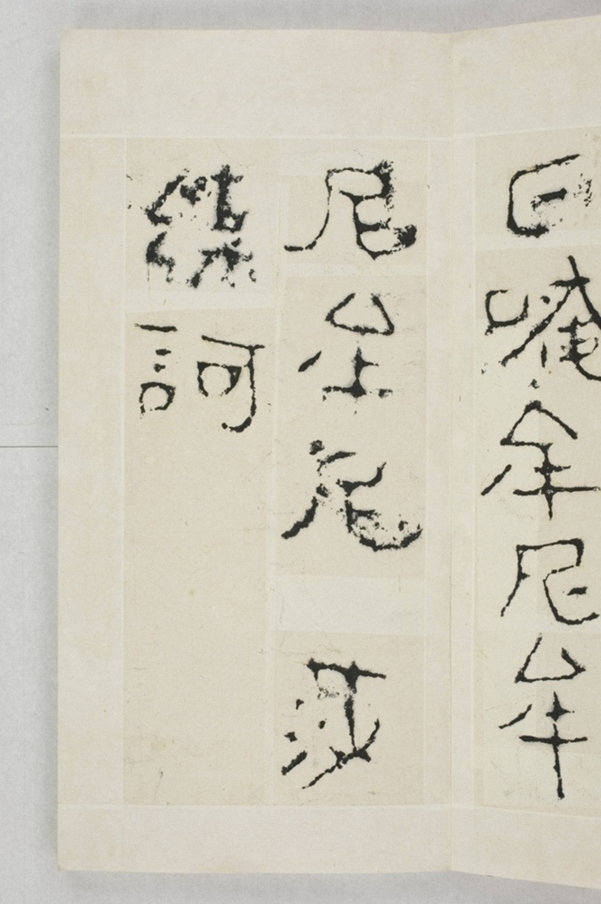 曰唵牟尼牟
尼牟尼莎
縛訶